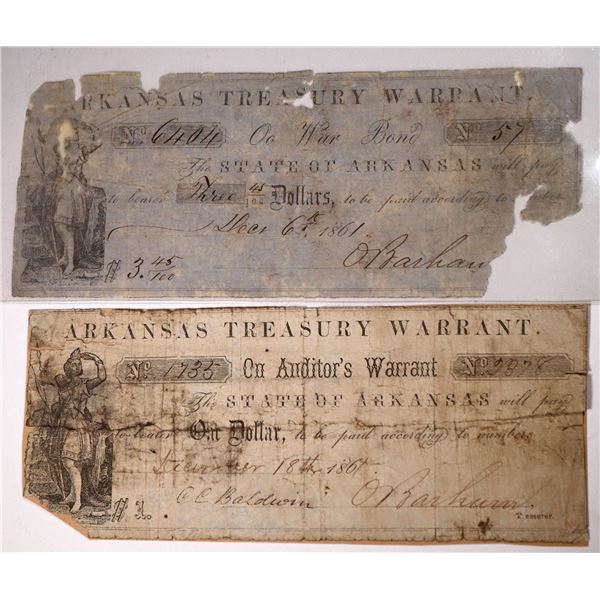 ARKANSAS TREASURY WARRANT.
No 6404 On War Bond No 57
The STATE OF ARKANSAS will pay
to bearer Three 45/100 Dollars, to be paid according to number
Decr 6th 1861
$ 3.45/100 O Barham
ARKANSAS TREASURY WARRANT.
No 1735 On Auditor's Warrant No 2978
The STATE OF ARKANSAS will pay
to bearer One Dollar, to be paid according to number
December 18th 1861
$ 1. C C Baldwin O Barham
Treasurer.